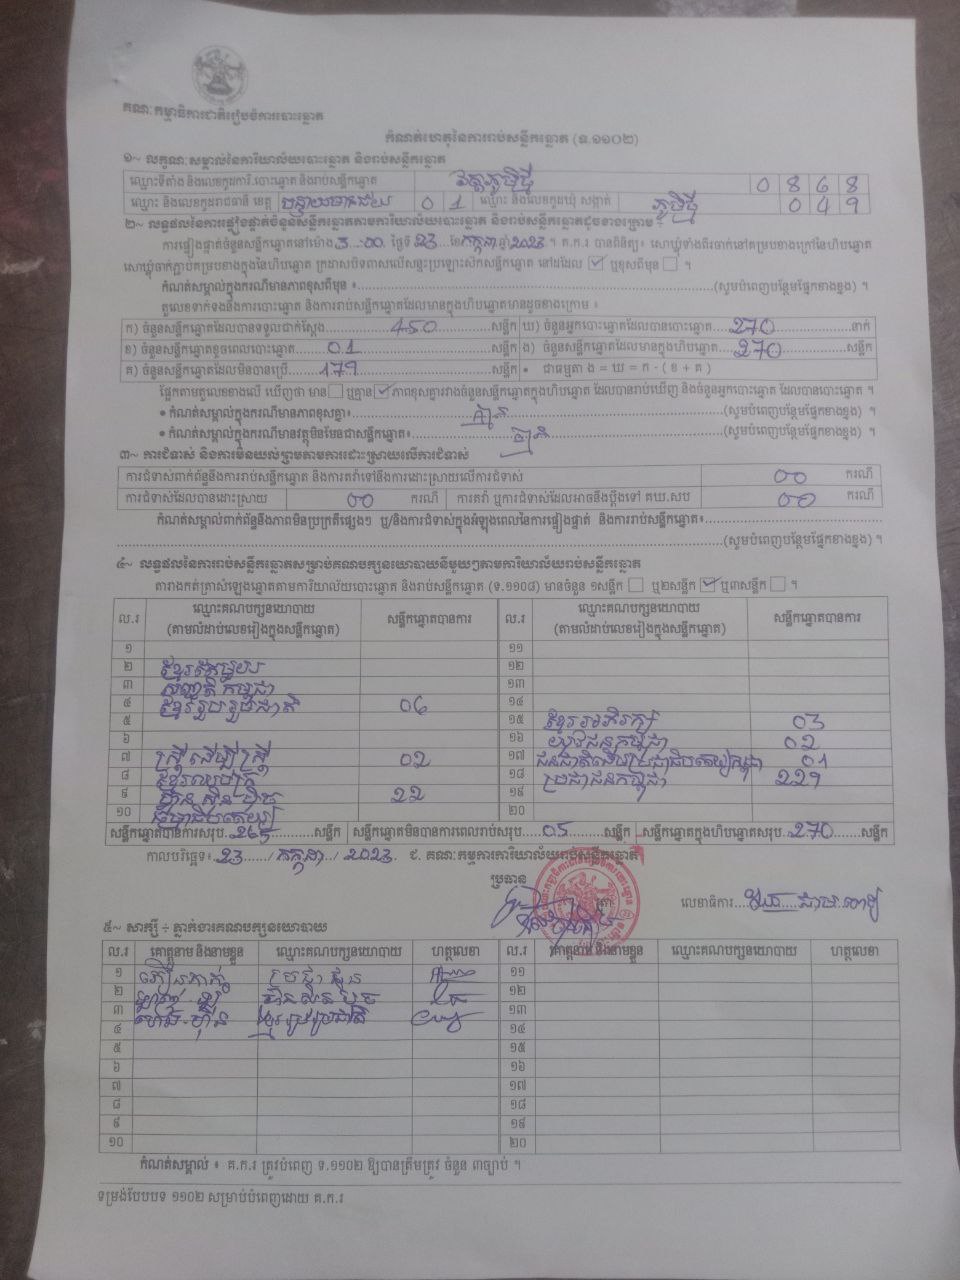 គណៈកម្មាធិការជាតិរៀបចំការបោះឆ្នោត
កំណត់ហេតុនៃការរាប់សន្លឹកឆ្នោត (ទ.១១០២)
១~ លក្ខណៈសម្គាល់នៃការិយាល័យបោះឆ្នោត និងរាប់សន្លឹកឆ្នោត
ឈ្មោះទីតាំង និងលេខកូដការិ.បោះឆ្នោត និងរាប់សន្លឹកឆ្នោត វត្តភូមិថ្មី 0 8 6 8
ឈ្មោះ និងលេខកូដរាជធានី ខេត្ត បន្ទាយមានជ័យ 0 1 ឈ្មោះ និងលេខកូដឃុំ សង្កាត់ ភូមិថ្មី 0 4 9
២~ លទ្ធផលនៃការផ្ទៀងផ្ទាត់ចំនួនសន្លឹកឆ្នោតតាមការិយាល័យបោះឆ្នោត និងរាប់សន្លឹកឆ្នោតដូចខាងក្រោម ÷
ការផ្ទៀងផ្ទាត់ចំនួនសន្លឹកឆ្នោតនៅម៉ោង 3:00 ថ្ងៃទី 23 ខែ កក្កដា ឆ្នាំ 2023 ។ គ.ក.រ បានពិនិត្យ៖ សោឃ្លុំទាំងពីរចាក់នៅគម្របខាងក្រៅនៃហិបឆ្នោត
សោឃ្លុំចាក់ភ្ជាប់គម្របខាងក្នុងនៃហិបឆ្នោត ក្រដាសបិទពាសលើសន្ទះប្រឡោះសៀតសន្លឹកឆ្នោត នៅដដែល ☑ ឬខុសពីមុន ☐ ។
កំណត់សម្គាល់ក្នុងករណីមានភាពខុសពីមុន ៖ (សូមបំពេញបន្ថែមផ្នែកខាងខ្នង) ។
តួលេខទាក់ទងនឹងការបោះឆ្នោត និងការរាប់សន្លឹកឆ្នោតដែលមានក្នុងហិបឆ្នោតមានដូចខាងក្រោម ៖
ក) ចំនួនសន្លឹកឆ្នោតដែលបានទទួលជាក់ស្តែង 450 សន្លឹក ឃ) ចំនួនអ្នកបោះឆ្នោតដែលបានបោះឆ្នោត 270 នាក់
ខ) ចំនួនសន្លឹកឆ្នោតខូចពេលបោះឆ្នោត 01 សន្លឹក ង) ចំនួនសន្លឹកឆ្នោតដែលមានក្នុងហិបឆ្នោត 270 សន្លឹក
គ) ចំនួនសន្លឹកឆ្នោតដែលមិនបានប្រើ 179 សន្លឹក • ជាធម្មតា ង = ឃ = ក - ( ខ + គ )
ផ្អែកតាមតួលេខខាងលើ ឃើញថា មាន ☐ ឬគ្មាន ☑ ភាពខុសគ្នារវាងចំនួនសន្លឹកឆ្នោតក្នុងហិបឆ្នោត ដែលបានរាប់ឃើញ និងចំនួនអ្នកបោះឆ្នោត ដែលបានបោះឆ្នោត ។
• កំណត់សម្គាល់ក្នុងករណីមានភាពខុសគ្នា៖ គ្មាន (សូមបំពេញបន្ថែមផ្នែកខាងខ្នង) ។
• កំណត់សម្គាល់ក្នុងករណីមានវត្ថុមិនមែនជាសន្លឹកឆ្នោត៖ គ្មាន (សូមបំពេញបន្ថែមផ្នែកខាងខ្នង) ។
៣~ ការជំទាស់ និងការមិនយល់ព្រមតាមការដោះស្រាយលើការជំទាស់
ការជំទាស់ពាក់ព័ន្ធនឹងការរាប់សន្លឹកឆ្នោត និងការតវ៉ាទៅនឹងការដោះស្រាយលើការជំទាស់ 00 ករណី
ការជំទាស់ដែលបានដោះស្រាយ 00 ករណី ការតវ៉ា ឬការជំទាស់ដែលអាចនឹងប្តឹងទៅ គឃ.សប 00 ករណី
កំណត់សម្គាល់ពាក់ព័ន្ធនឹងភាពមិនប្រក្រតីផ្សេងៗ ឬ/និងការជំទាស់ក្នុងអំឡុងពេលនៃការផ្ទៀងផ្ទាត់ និងការរាប់សន្លឹកឆ្នោត៖
(សូមបំពេញបន្ថែមផ្នែកខាងខ្នង) ។
៤~ លទ្ធផលនៃការរាប់សន្លឹកឆ្នោតសម្រាប់គណបក្សនយោបាយនីមួយៗតាមការិយាល័យរាប់សន្លឹកឆ្នោត
តារាងកត់ត្រាសំឡេងឆ្នោតតាមការិយាល័យបោះឆ្នោត និងរាប់សន្លឹកឆ្នោត (ទ.១១០៨) មានចំនួន ១សន្លឹក ☐ ឬ២សន្លឹក ☑ ឬ៣សន្លឹក ☐ ។
ល.រ ឈ្មោះគណបក្សនយោបាយ (តាមលំដាប់លេខរៀងក្នុងសន្លឹកឆ្នោត) សន្លឹកឆ្នោតបានការ ល.រ ឈ្មោះគណបក្សនយោបាយ (តាមលំដាប់លេខរៀងក្នុងសន្លឹកឆ្នោត) សន្លឹកឆ្នោតបានការ
១ ១១
២ ខ្មែរតែមួយ ១២
៣ សញ្ជាតិកម្ពុជា ១៣
៤ ខ្មែររួបរួមជាតិ 06 ១៤
៥ ១៥ ខ្មែរអភិរក្ស 03
៦ ១៦ យុវជនកម្ពុជា 02
៧ ស្ត្រីដើម្បីស្ត្រី 02 ១៧ ជនជាតិដើមប្រជាធិបតេយ្យកម្ពុជា 01
៨ ១៨ ប្រជាជនកម្ពុជា 229
៩ ហ្វ៊ុនស៊ិនប៉ិច 22 ១៩
១០ ធម្មាធិបតេយ្យ ២០
សន្លឹកឆ្នោតបានការសរុប 265 សន្លឹក សន្លឹកឆ្នោតមិនបានការពេលរាប់សរុប 05 សន្លឹក សន្លឹកឆ្នោតក្នុងហិបឆ្នោតសរុប 270 សន្លឹក
កាលបរិច្ឆេទ៖ 23 / កក្កដា / 2023 ជ. គណៈកម្មការការិយាល័យរាប់សន្លឹកឆ្នោត
ប្រធាន
លេខាធិការ
៥~ សាក្សី ÷ ភ្នាក់ងារគណបក្សនយោបាយ
ល.រ គោត្តនាម និងនាមខ្លួន ឈ្មោះគណបក្សនយោបាយ ហត្ថលេខា ល.រ គោត្តនាម និងនាមខ្លួន ឈ្មោះគណបក្សនយោបាយ ហត្ថលេខា
១ ប្រជាជន ១១
២ ហ្វ៊ុនស៊ិនប៉ិច ១២
៣ ខ្មែររួបរួមជាតិ ១៣
៤ ១៤
៥ ១៥
៦ ១៦
៧ ១៧
៨ ១៨
៩ ១៩
១០ ២០
កំណត់សម្គាល់ ៖ គ.ក.រ ត្រូវបំពេញ ទ.១១០២ ឱ្យបានត្រឹមត្រូវ ចំនួន ៣ច្បាប់ ។
ទម្រង់បែបបទ ១១០២ សម្រាប់បំពេញដោយ គ.ក.រ